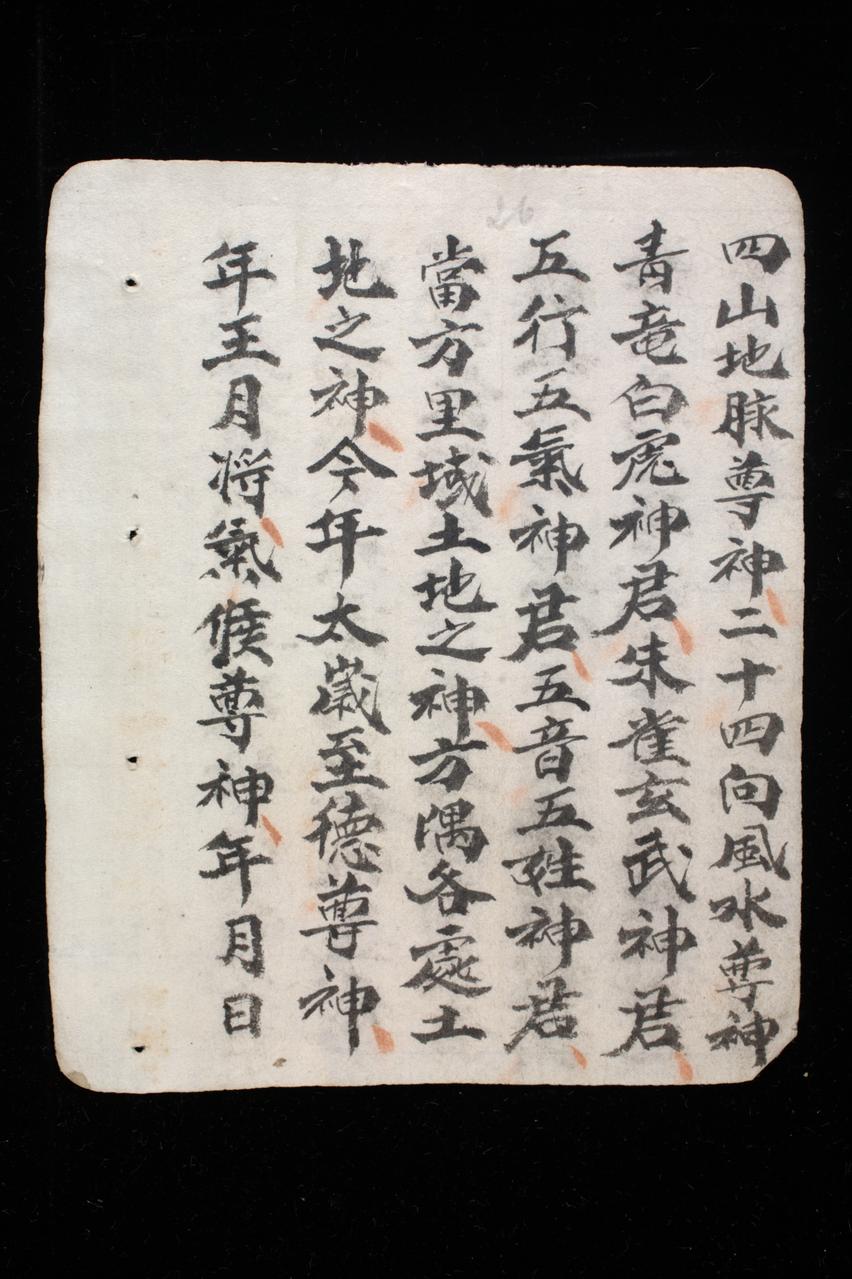 26
四山地脉尊神二十四向風水尊神
青竜白虎神君朱雀玄武神君
五行五氣神君五音五姓神君
當方里域土地之神方隅各處土
地之神今年太歲至德尊神
年王月将氣候尊神年月日